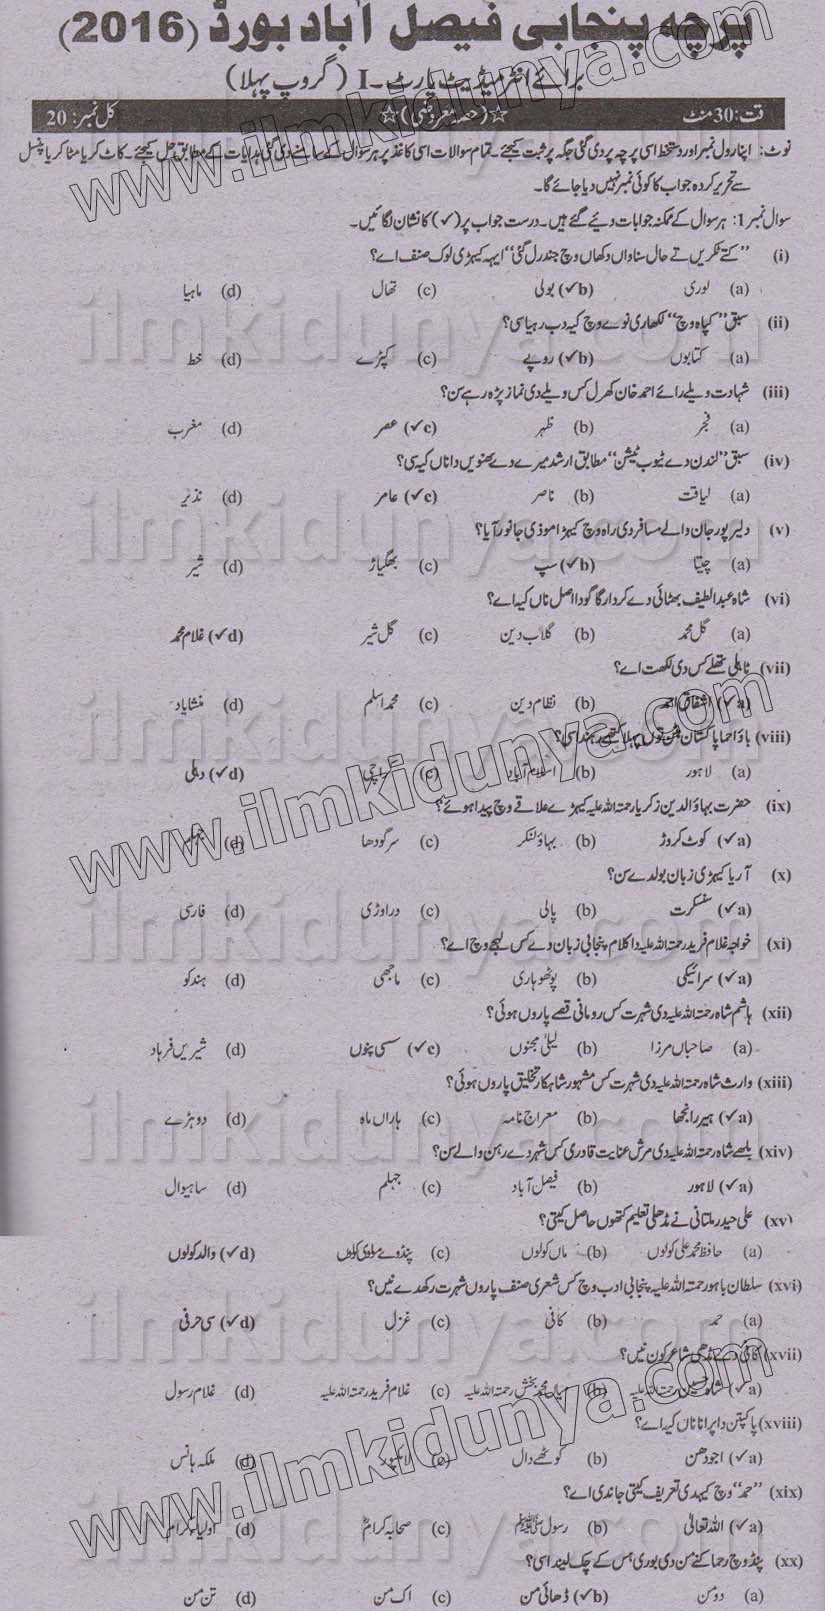 پرچہ پنجابی فیصل آباد بورڈ (2016)
برائے انٹرمیڈیٹ پارٹ۔I (گروپ پہلا)
وقت: 30 منٹ ☆(حصہ معروضی)☆ کل نمبر: 20
نوٹ: اپنا رول نمبر اور دستخط اسی پرچہ پر دی گئی جگہ پر ثبت کیجئے۔ تمام سوالات اسی کاغذ پر ہر سوال کے سامنے دی گئی ہدایات کے مطابق حل کیجئے۔ کاٹ کر یا مٹا کر یا پنسل
سے تحریر کردہ جواب کا کوئی نمبر نہیں دیا جائے گا۔
سوال نمبر1: ہر سوال کے ممکنہ جوابات دیئے گئے ہیں۔ درست جواب پر (✓) کا نشان لگائیں۔
(i) "کتے ٹکریں تے حال سناواں دکھاں وچ جند رل گئی" ایہہ کیہڑی لوک صنف اے؟
(a) لوری (✓b) بولی (c) تھال (d) ماہیا
(ii) سبق "کپاہ وچ" لکھاری نوے وچ کیہ دب رہیا سی؟
(a) کتابوں (✓b) روپے (c) کپڑے (d) خط
(iii) شہادت ویلے رائے احمد خان کھرل کس ویلے دی نماز پڑھ رہے سن؟
(a) فجر (b) ظہر (✓c) عصر (d) مغرب
(iv) سبق "لندن دے ٹیوب ٹیشن" مطابق ارشد میر دے بھنویں دا ناں کیہ سی؟
(a) لیاقت (b) ناصر (✓c) عامر (d) نذیر
(v) دلیر پور جان والے مسافر دی راہ وچ کیہڑا موذی جانور آیا؟
(a) چیتا (✓b) سپ (c) بھگیاڑ (d) شیر
(vi) شاہ عبدالطیف بھٹائی دے کردار گاگو دا اصل ناں کیہ اے؟
(a) گل محمد (b) گلاب دین (c) گل شیر (✓d) غلام محمد
(vii) ٹاہلی تھلے کس دی لکھت اے؟
(✓a) اشفاق احمد (b) نظام دین (c) محمد اسلم (d) منشا یاد
(viii) باؤ احما پاکستان بنن توں پہلا کتھے رہندا سی؟
(a) لاہور (b) اسلام آباد (c) کراچی (✓d) دہلی
(ix) حضرت بہاؤالدین زکریا رحمتہ اللہ علیہ کیہڑے علاقے وچ پیدا ہوئے؟
(✓a) کوٹ کروڑ (b) بہاؤ لنکر (c) سرگودھا (d)
(x) آریا کیہڑی زبان بولدے سن؟
(✓a) سنسکرت (b) پالی (c) دراوڑی (d) فارسی
(xi) خواجہ غلام فرید رحمتہ اللہ علیہ دا کلام پنجابی زبان دے کس لہجے وچ اے؟
(✓a) سرائیکی (b) پوٹھوہاری (c) ماجھی (d) ہندکو
(xii) ہاشم شاہ رحمتہ اللہ علیہ دی شہرت کس رومانی قصے پاروں ہوئی؟
(a) صاحباں مرزا (b) لیلیٰ مجنوں (✓c) سسی پنوں (d) شیریں فرہاد
(xiii) وارث شاہ رحمتہ اللہ علیہ دی شہرت کس مشہور شاہکار تخلیق پاروں ہوئی؟
(✓a) ہیر رانجھا (b) معراج نامہ (c) باراں ماہ (d) دوہڑے
(xiv) بلھے شاہ رحمتہ اللہ علیہ دی مرش عنایت قادری کس شہر دے رہن والے سن؟
(✓a) لاہور (b) فیصل آباد (c) جہلم (d) ساہیوال
(xv) علی حیدر ملتانی نے مڈھلی تعلیم کتھوں حاصل کیتی؟
(a) حافظ محمد علی کولوں (b) ماں کولوں (c) پنڈ دے مولوی کولوں (✓d) والد کولوں
(xvi) سلطان باہو رحمتہ اللہ علیہ پنجابی ادب وچ کس شعری صنف پاروں شہرت رکھدے نیں؟
(a) حمد (b) کافی (c) غزل (✓d) سی حرفی
(xvii) کافی دے مڈھی شاعر کون نیں؟
(✓a) شاہ حسین رحمتہ اللہ علیہ (b) میاں محمد بخش رحمتہ اللہ علیہ (c) غلام فرید رحمتہ اللہ علیہ (d) غلام رسول
(xviii) پاکپتن دا پرانا ناں کیہ اے؟
(✓a) اجودھن (b) کوٹھے دال (c) لائلپور (d) ملکہ ہانس
(xix) "حمد" وچ کیہدی تعریف کیتی جاندی اے؟
(✓a) اللہ تعالیٰ (b) رسول ﷺ (c) صحابہ کرام (d) اولیاء کرام
(xx) پنڈ وچ رحما کنے من دی بوری ہس کے چک لیندا سی؟
(a) دو من (✓b) ڈھائی من (c) اک من (d) تن من
www.ilmkidunya.com